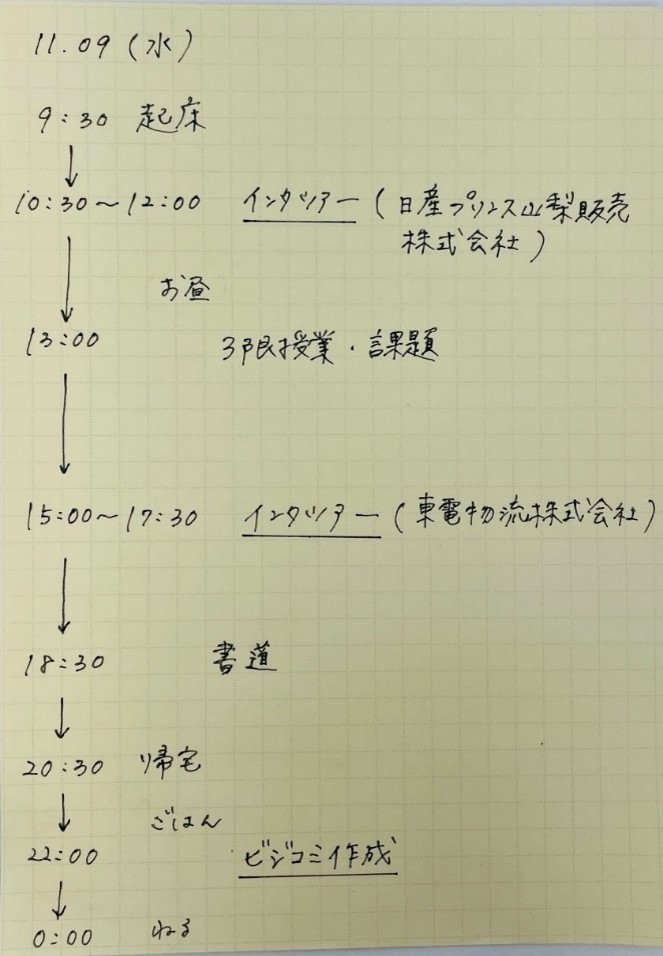 11.09 (水)
9:30 起床
10:30～12:00 インタツアー (日産プリンス山梨販売
株式会社)
お昼
13:00 3限授業・課題
15:00～17:30 インタツアー (東電物流株式会社)
18:30 書道
20:30 帰宅
ごはん
22:00 ビジコミ作成
0:00 ねる